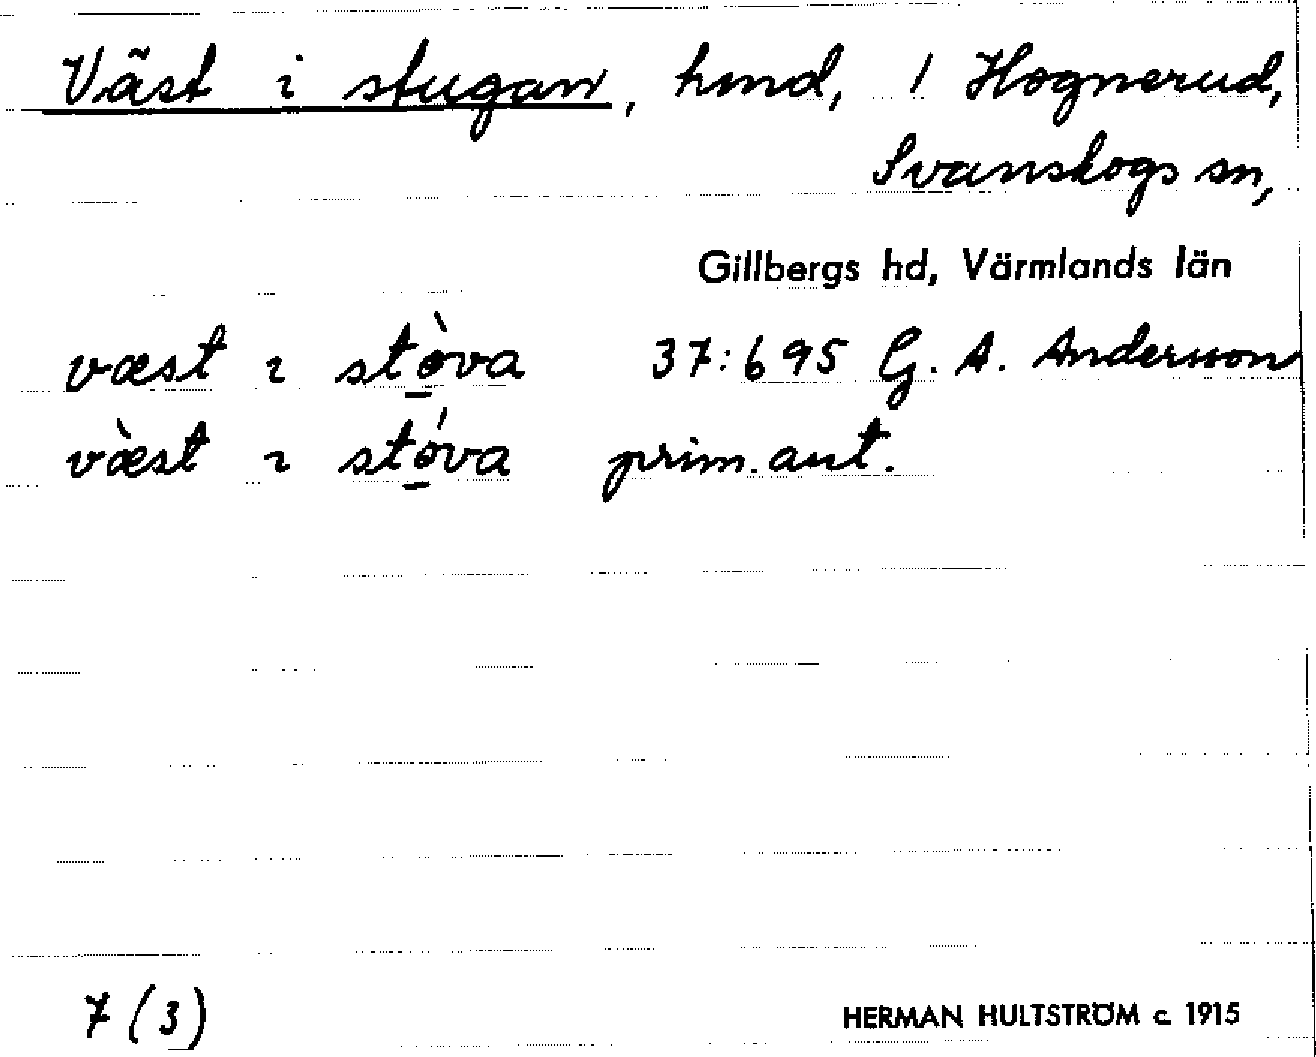 Väst i stugan, hmd, 1 Hognerud,
Svanskogs sn,
Gillbergs hd, Värmlands län
væst ɩ stø̀va 37:695 G. A. Andersson
væ̀st ɩ stǿva prim. ant.
7 (3) HERMAN HULTSTRÖM c. 1915